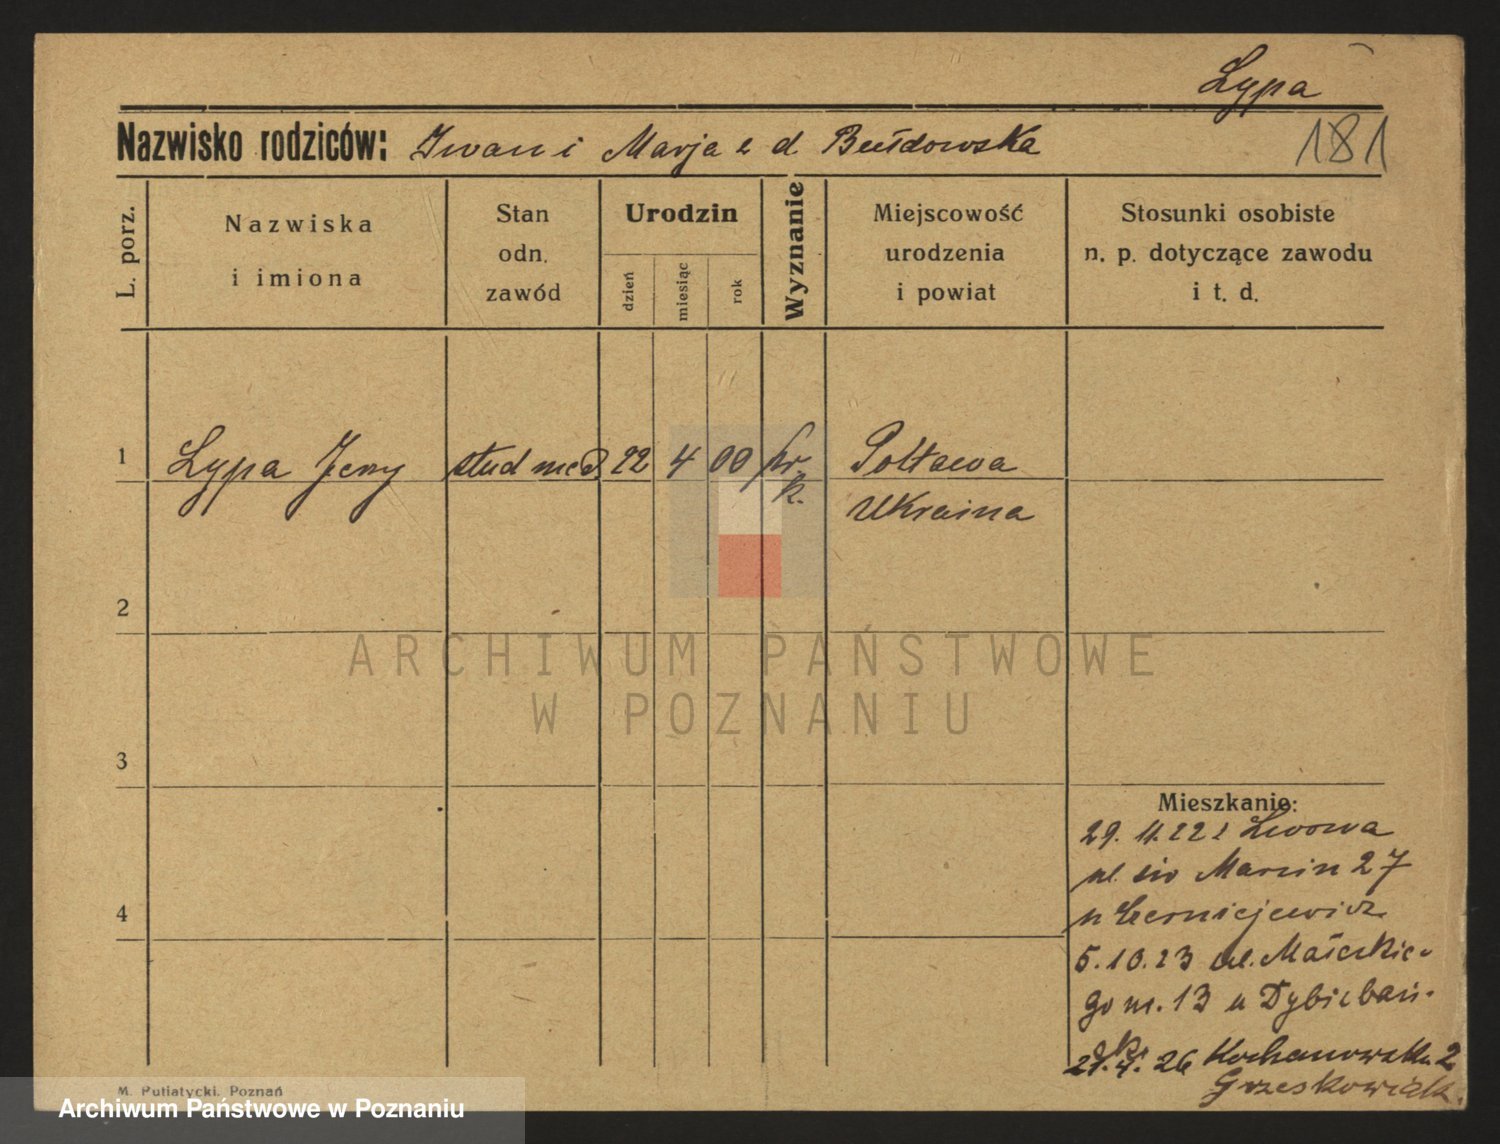 Lypa
181
Nazwisko rodziców: Iwan i Marja z d. Bułdowska
L. porz.
Nazwiska
i imiona
Stan
odn.
zawód
Urodzin
dzień
miesiąc
rok
Wyznanie
Miejscowość
urodzenia
i powiat
Stosunki osobiste
n. p. dotyczące zawodu
i t. d.
1 Lypa Jerzy stud med. 22 4 00 pr. Połtawa
k. Ukraina
2
ARCHIWUM PAŃSTWOWE
W POZNANIU
3
Mieszkanie:
29. 11. 22 z Lwowa
ul. św Marcin 27
4
5.10.23 ul. Małeckie-
go m. 13 u
26 Kochanowsk. 2
Grześkowiak.
M. Putiatycki, Poznań
Archiwum Państwowe w Poznaniu